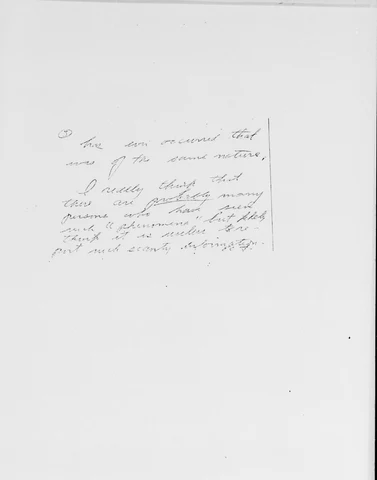 ③ has ever occurred that
was of the same nature.
I really think that
there are probably many
persons who have seen
such "phenomena" but
think it is useless to re-
port such scanty information.